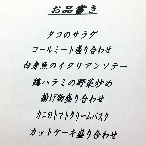 お品書き
タコのサラダ
コールミート盛り合わせ
白身魚のイタリアンソテー
鶏ハラミの野菜炒め
揚げ物盛り合わせ
カニのトマトクリームパスタ
カットケーキ盛り合わせ